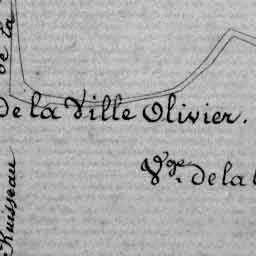 de la
de la Ville Olivier.
Vge. de la
Ruisseau